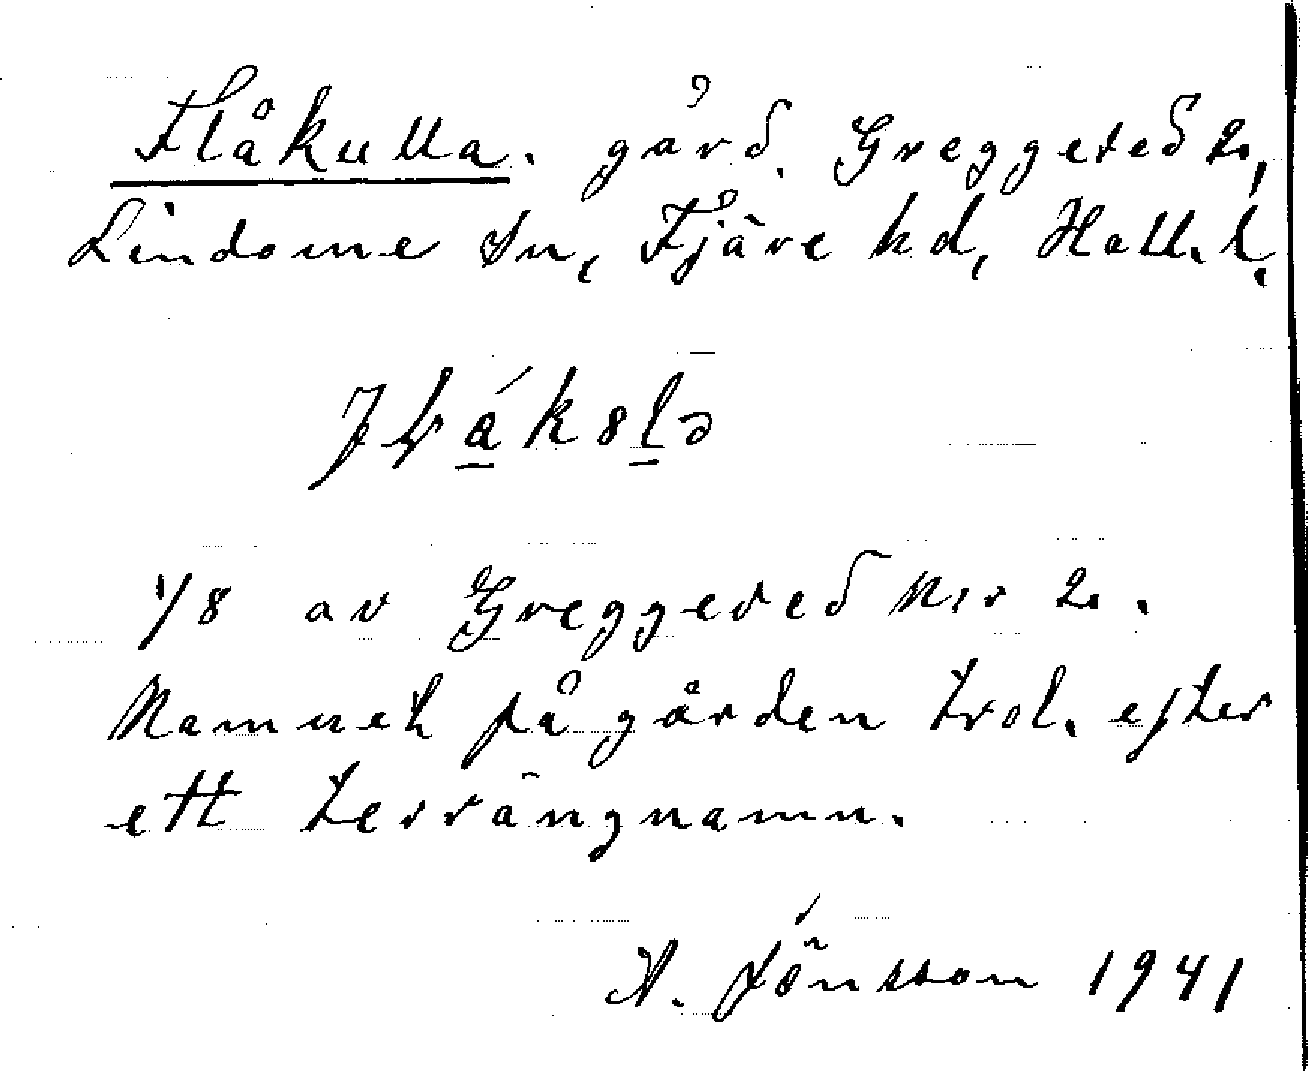 Flåkulla. gård. Greggered 2,
Lindome sn, Fjäre hd, Hall. l.
1/8 av Greggered N:r 2.
Namnet på gården trol. efter
ett terrängnamn.
A. Jönsson 1941